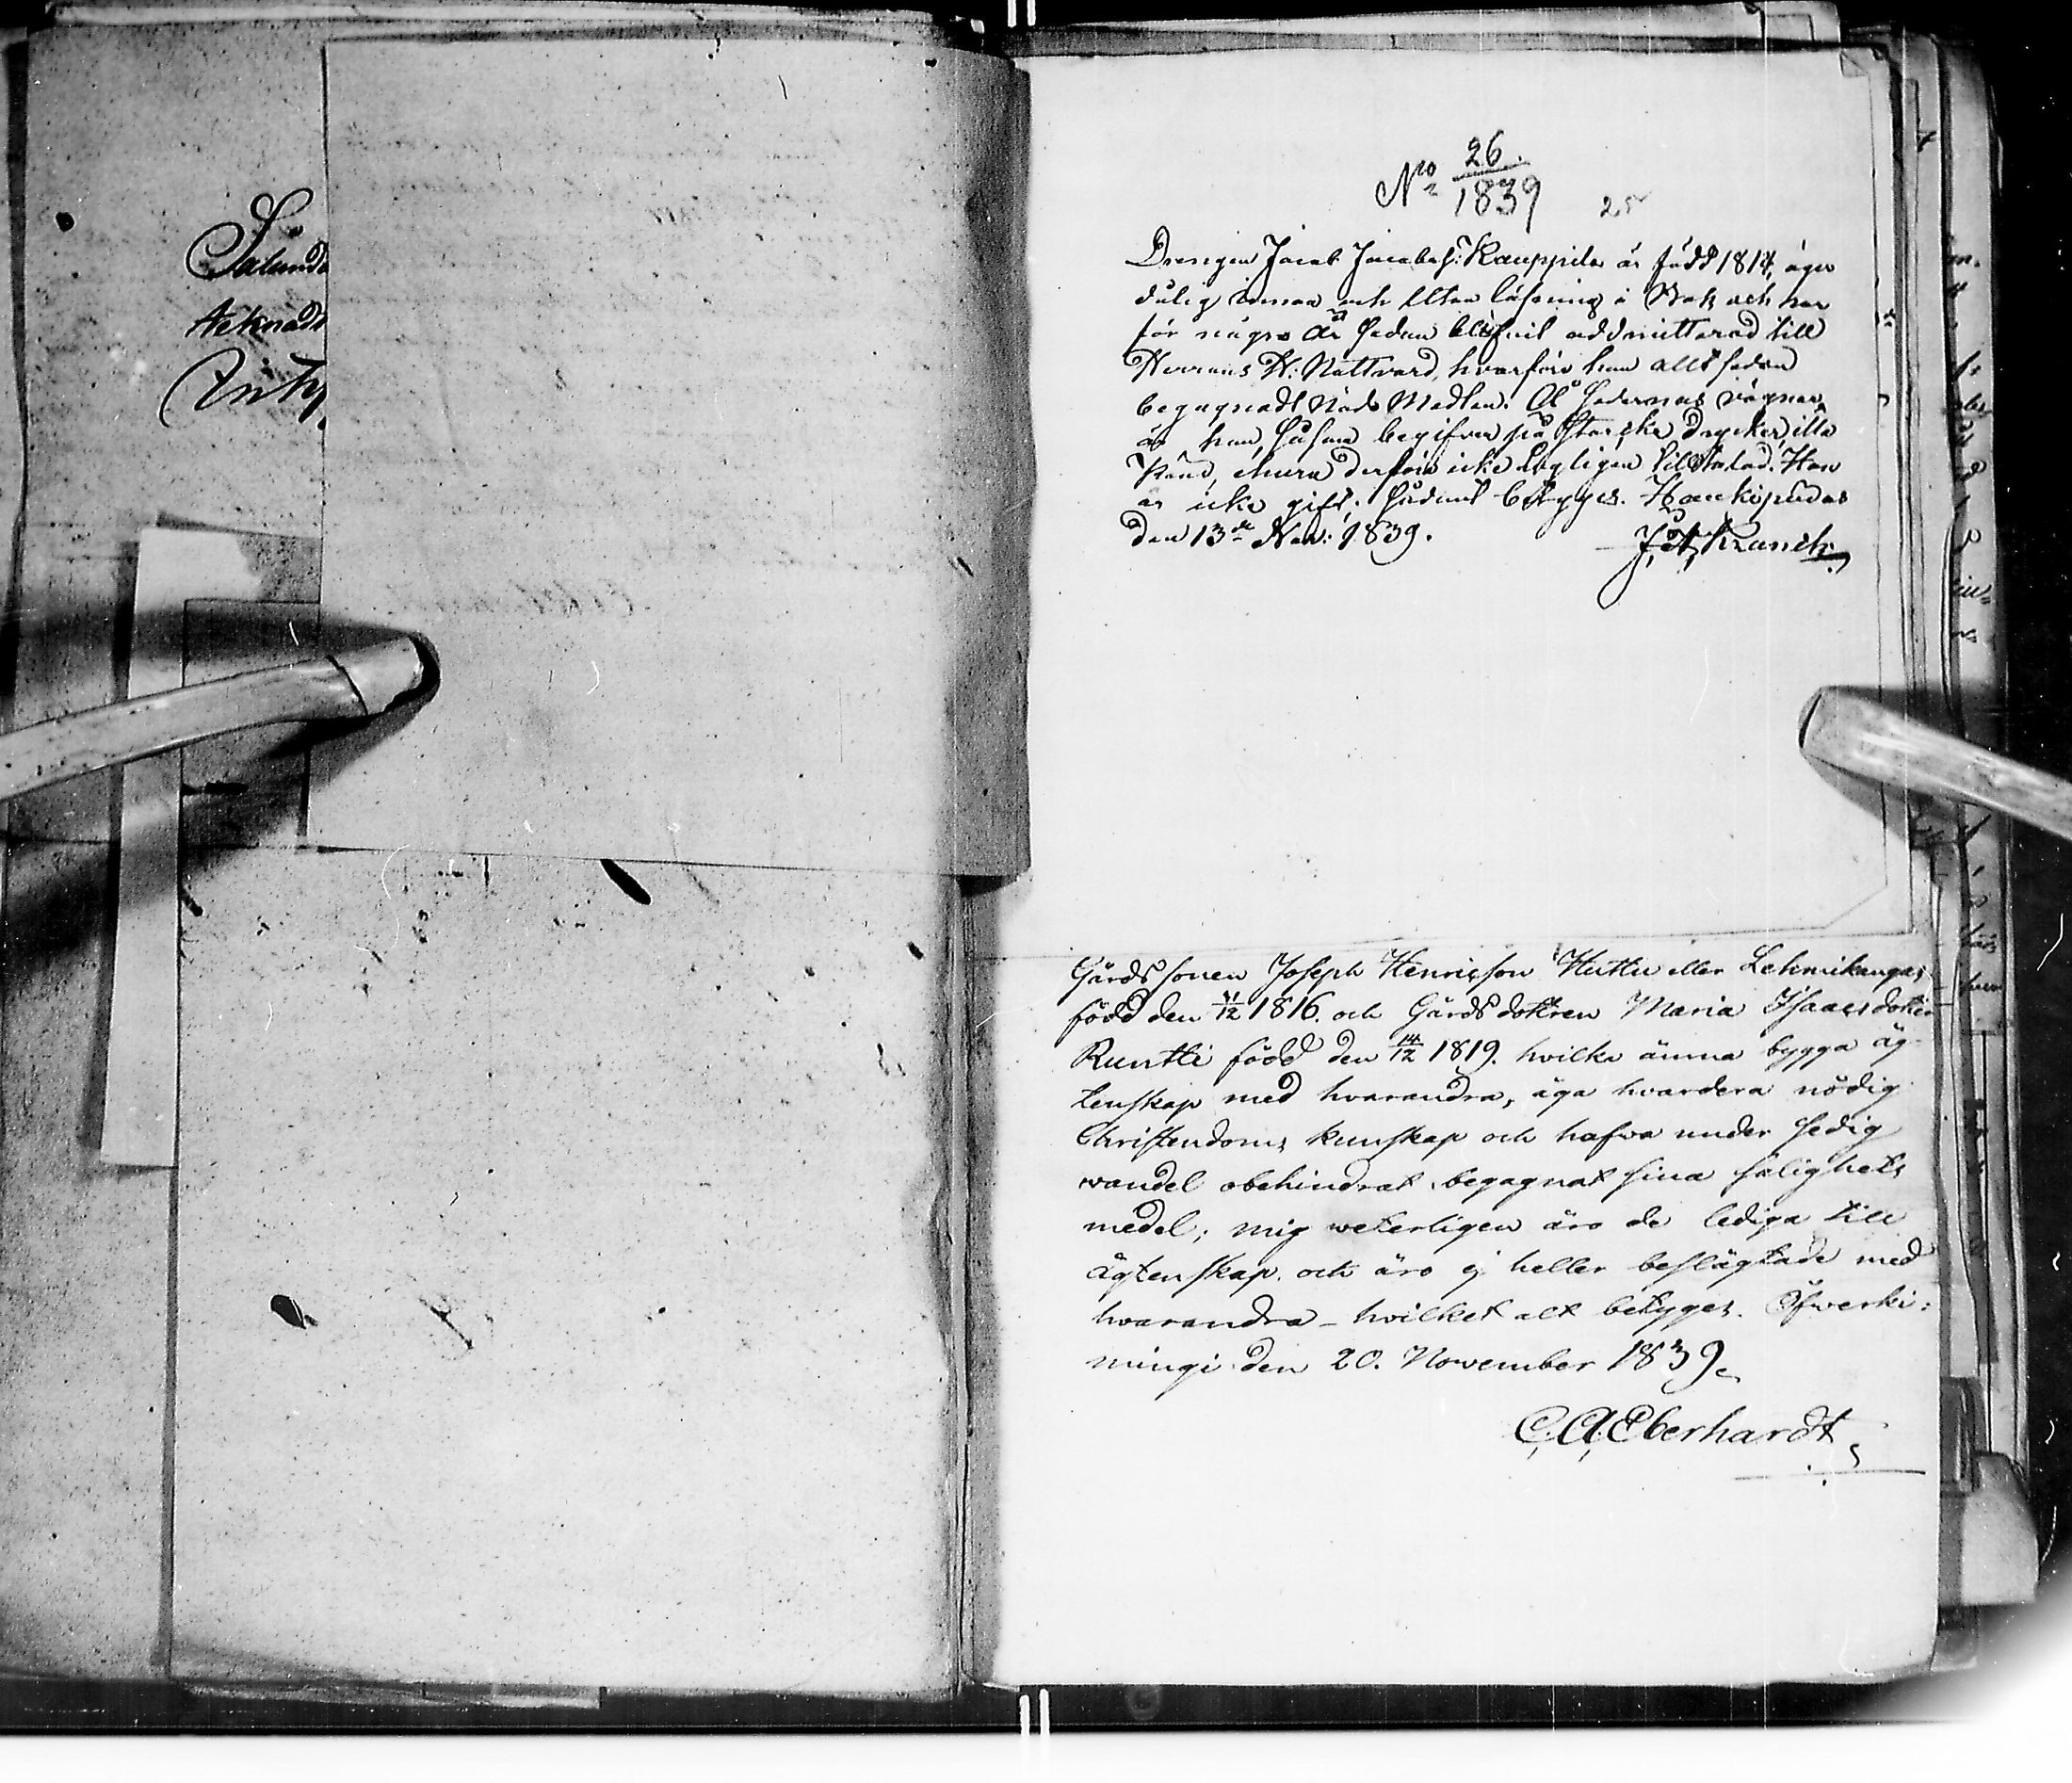 Salunda
tecknads
N:o 26./1839
25
Drengen Jacob Jacobss: Kauppila är född 1817, äger
dålig innan och Utan läsning i Bok och har
för några år sedan blifvit addmitterad till
Herrans H: Nattvard, hvarföre han allt sedan
begagnadt Nåde Medlen. Å Sedernas vägnar,
är han, såsom begifven på starcka drycker, illa
känd, ehuru derföre icke Lagligen tilltalad. Han
är icke gift; sådant betyges. Haukipudas
den 13de Nov: 1839.
J. A. Kranck
Gårds sonen Joseph Henricson Huttu eller Lehmikangas,
född den 11/12 1816. och Gårds dottren Maria Isaacs dotter
Runtti född den 14/12 1819. hvilka ämna bygga äg-
tenskap med hvarandra, äga hvardera nödig
Christendoms kunskap och hafva under sedig
wandel obehindrat begagnat sina salighets
medel; mig weterligen äro de lediga till
ägtenskap, och äro ej heller beslägtade med
hvarandra - hvilket alt betyges. Öfwerki:
mingi den 20. November 1839.
C. A. Eberhardt